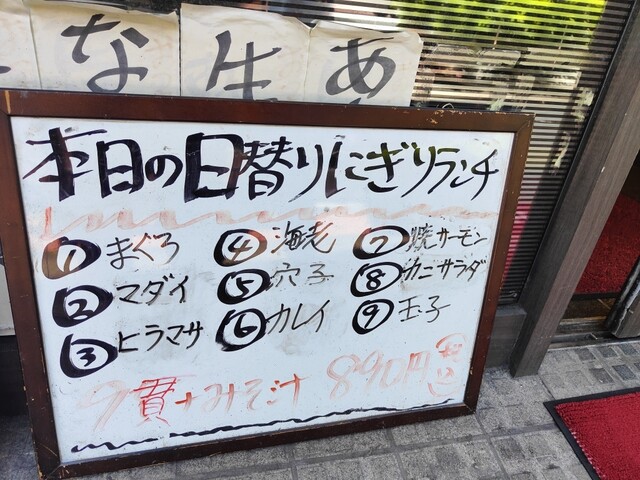 な 生 あ
本日の日替りにぎりランチ
① まぐろ ④ 海老 ⑦ 焼サーモン
② マダイ ⑤ 穴子 ⑧ カニサラダ
③ ヒラマサ ⑥ カレイ ⑨ 玉子
9貫+みそ汁 890円